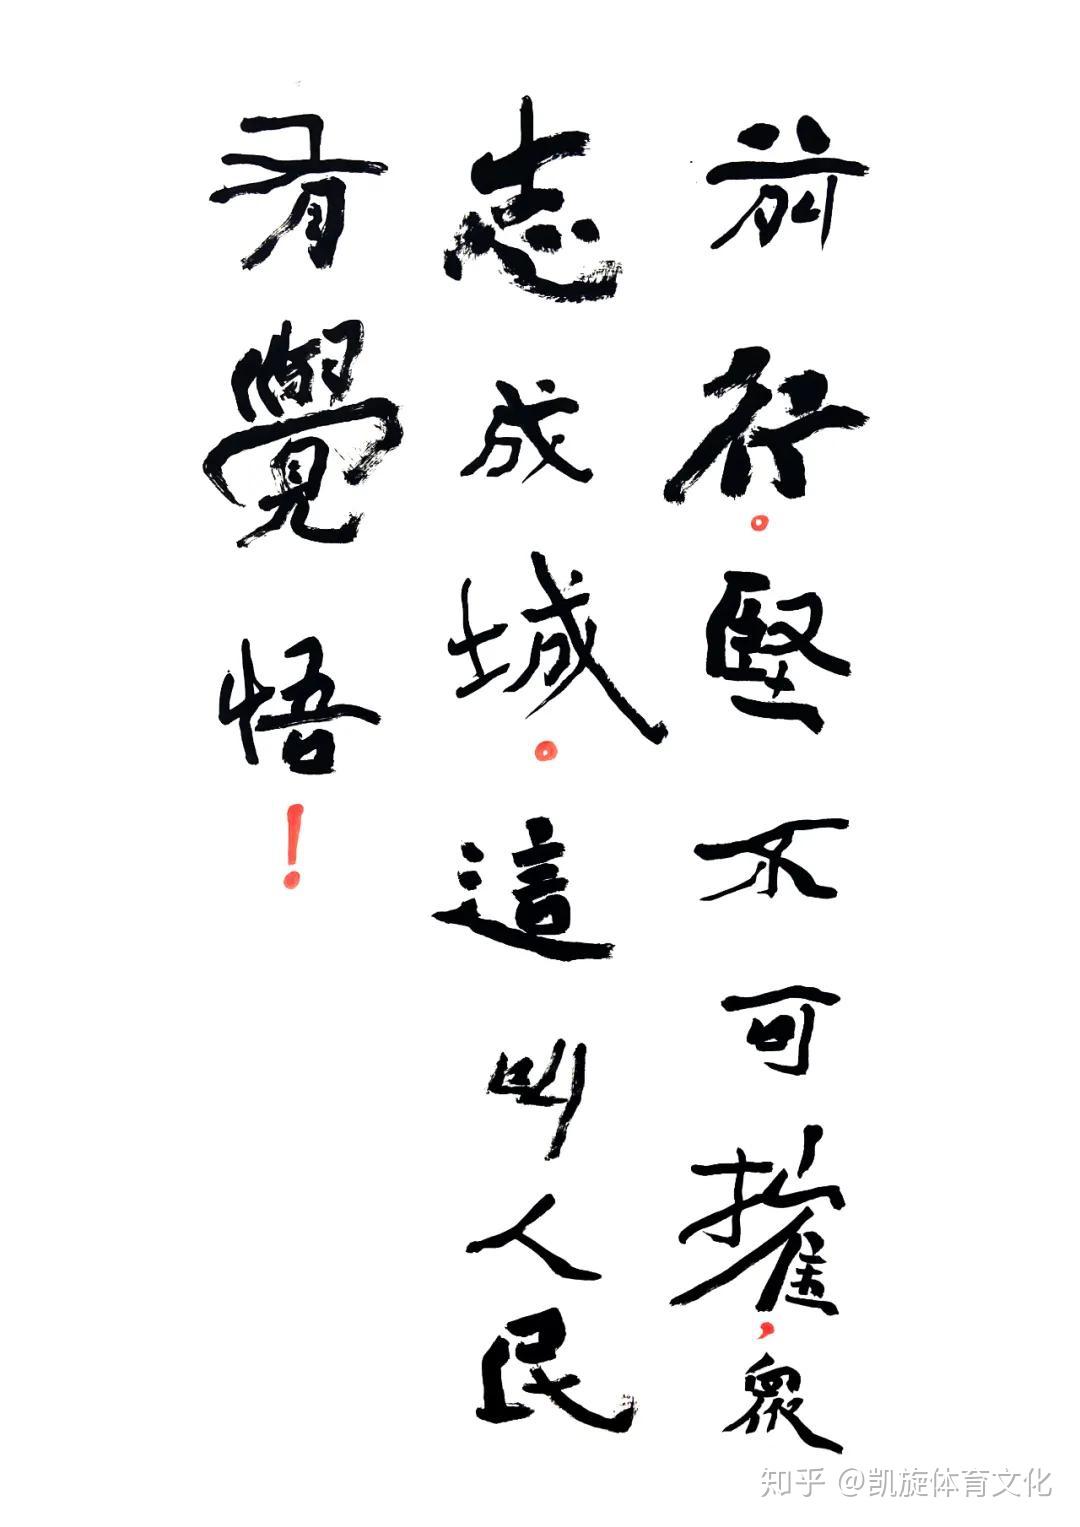 前行。堅不可摧，眾
志成城。這叫人民
有覺悟！
知乎 @凯旋体育文化